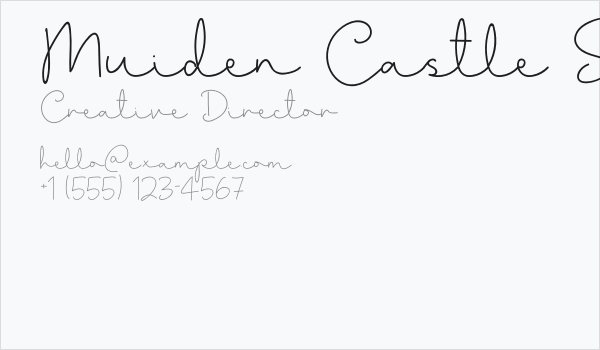 Muiden Castle S
Creative Director
hello@example.com
+1 (555) 123-4567